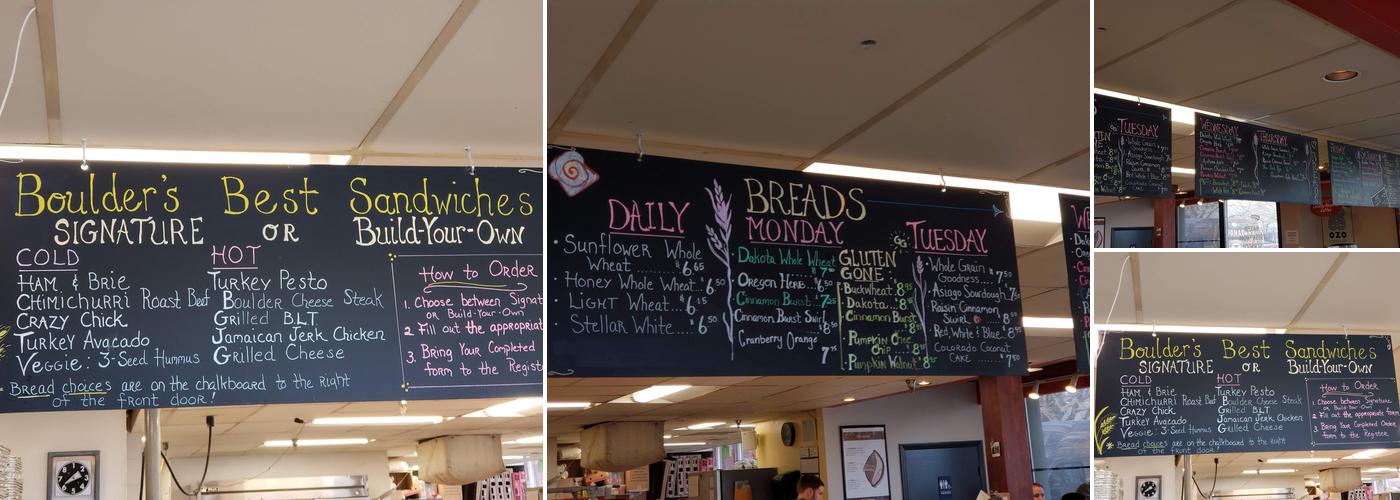 Boulder's Best Sandwiches
SIGNATURE OR Build-Your-Own
COLD
HAM & Brie
CHIMICHURRI Roast Beef
CRAZY Chick
Turkey Avocado
Veggie: 3-Seed Hummus
HOT
Turkey Pesto
Boulder Cheese Steak
Grilled BLT
Jamaican Jerk Chicken
Grilled Cheese
How to Order
1. Choose between Signat
or Build-Your-Own
2 Fill out the appropriat
3. Bring Your Completed
form to the Registe
Bread choices are on the chalkboard to the right
of the front door!
BREADS
DAILY
Sunflower Whole
Wheat ........ $6.65
Honey Whole Wheat.. $6.50
LIGHT Wheat.... $6.15
Stellar White.... 6.50
MONDAY
Dakota Whole Wheat
Oregon Herb... 6.50
Cinnamon Burst.. 7.25
Cinnamon Burst Swirl
Cranberry Orange
7.75
GLUTEN
GONE
Buckwheat
Dakota
Cinnamon Burst
Pumpkin Choc
Chip
Pumpkin Walnut
TUESDAY
Whole Grain
Goodness.... $7.50
Asiago Sourdough
Raisin Cinnamon
Swirl
Red, White & Blue
Colorado Coconut
CAKE... $7.50
TUESDAY
WEDNESDAY
THURSDAY
OZO
Boulder's Best Sandwiches
SIGNATURE OR Build-Your-Own
COLD
HAM & Brie
CHIMICHURRI Roast Beef
CRAZY Chick
Turkey Avocado
Veggie: 3-Seed Hummus
HOT
Turkey Pesto
Boulder Cheese Steak
Grilled BLT
Jamaican Jerk Chicken
Grilled Cheese
How to Order
1. Choose between Signature
or Build-Your-Own
2. Fill out the appropriate form
3. Bring Your Completed Order
form to the Register
Bread choices are on the chalkboard to the right
of the front door!